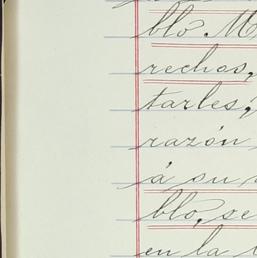 bló. M
rechos,
tarles,
razón
á su
bló, se
en la